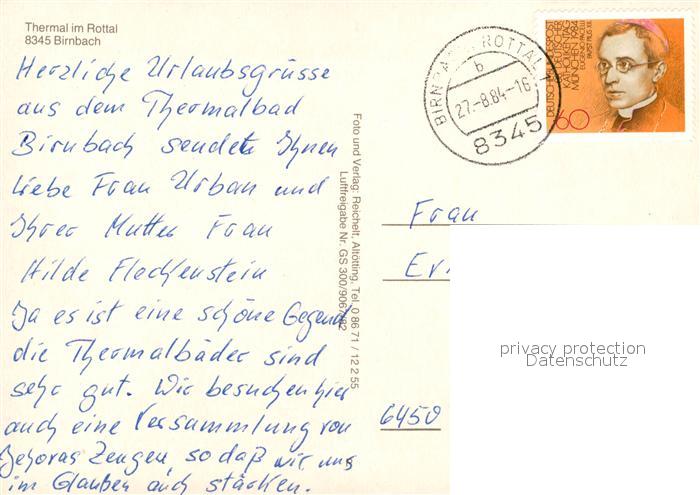 Thermal im Rottal
8345 Birnbach
Herzliche Urlaubsgrüsse
aus dem Thermalbad
Birnbach sendet Ihnen
liebe Frau Urban und
Ihrer Mutter Frau
Hilde Flechsenstein
Ja es ist eine schöne Gegend
die Thermalbäder sind
sehr gut. Wir besuchen hier
auch eine Versammlung von
Jehovas Zeugen, so daß wir uns
im Glauben auch stärken.
Foto und Verlag: Reichelt, Altötting, Tel. 0 86 71 / 12 2 55
Luftfreigabe Nr. GS 300/9067/82
BIRNBACH, ROTTAL 1
b
27.-8.84-16
8345
DEUTSCHE BUNDESPOST
88. DEUTSCHER
KATHOLIKENTAG
MÜNCHEN 1984
EUGENIO PACELLI
PAPST PIUS XII.
60
Frau
6450
privacy protection
Datenschutz